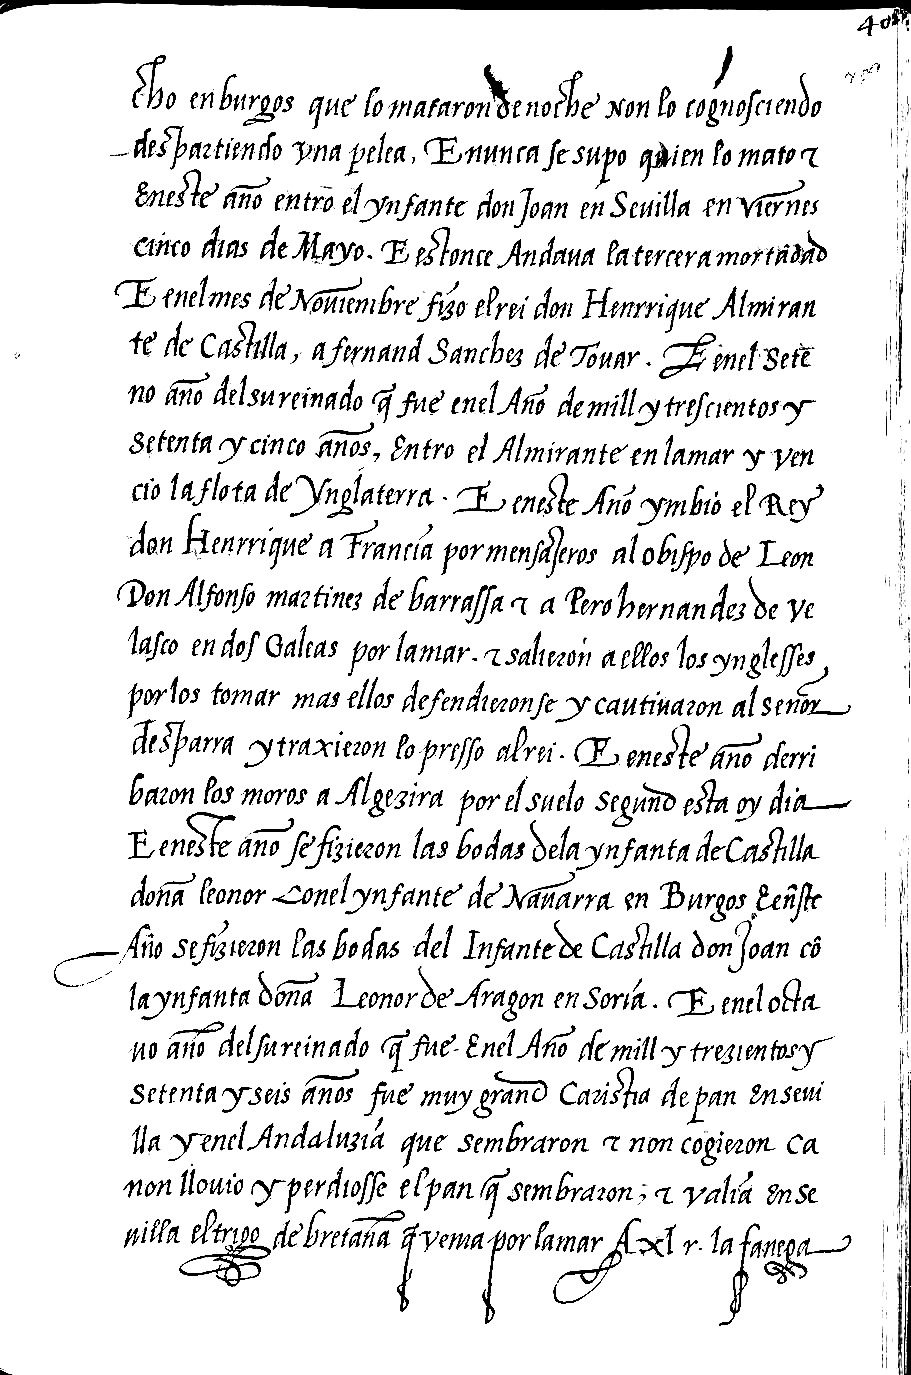 cho en burgos que lo mataron de noche non lo cognosciendo
despartiendo vna pelea, E nunca se supo quien lo mato τ
Eneste año entro el ynfante don Joan en Sevilla en viernes
cinco dias de Mayo. E estonce Andaua la tercera mortãdad
E enel mes de Nouiembre fizo el rei don Henrrique Almiran
te de Castilla, a fernand Sanchez de Touar. E enel sete
no año del su reinado q̃ fue enel Año de mill y trescientos y
setenta y cinco años, Entro el Almirante en la mar y ven
cio la flota de Ynglaterra. E eneste Año ymbió el Rey
don Henrrique a Francia por mensajeros al obispo de Leon
Don Alfonso martinez de barrassa τ a Pero hernandez de Ve
lasco en dos Galeas por la mar. τ salieron a ellos los ynglesses
por los tomar mas ellos defendieronse y cautiuaron al señor
desparra y traxieron lo presso al rei. E eneste año derri
baron los moros a Algezira por el suelo segund esta oy dia
E eneste año se fizieron las bodas dela ynfanta de Castilla
doña leonor Conel ynfante de Nauarra en Burgos Eẽste
Año se fizieron las bodas del Infante de Castilla don Joan cõ
la ynfanta doña Leonor de Aragon en Soria. E enel octa
uo año del su reinado q̃ fue Enel Año de mill y trezientos y
setenta y seis años fue muy grand Caristia de pan En seui
lla y enel Andaluzia que sembraron τ non cogieron ca
non llouio y perdiosse el pan q̃ sembraron; τ valia En se
uilla el trigo de bretaña q̃ venia por la mar A xl r. la fanega